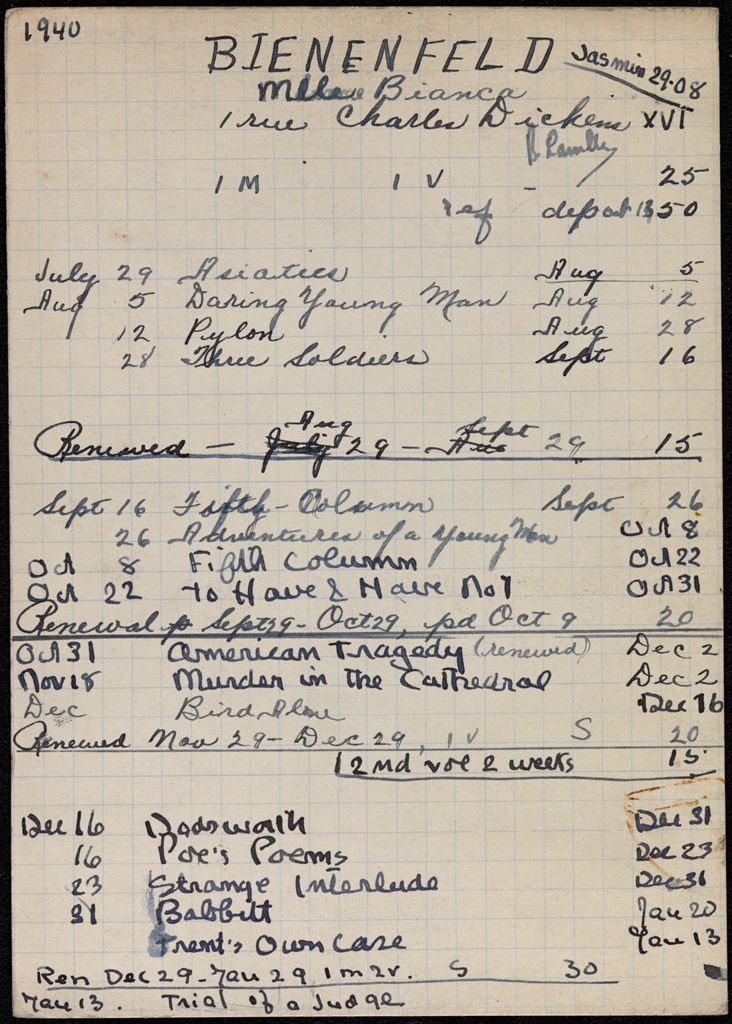 1940
BIENENFELD Jasmin 29-08
Mlle Bianca
1 rue Charles Dickens XVI
1 M 1 V - 25
ref deposit 13 50
July 29 Asiatics Aug 5
Aug 5 Daring Young Man Aug 12
12 Pylon Aug 28
28 Three Soldiers Sept 16
Renewed — Aug 29 - Sept 29 15
Sept 16 Fifth-Column Sept 26
26 Adventures of a Young Man Oct 8
Oct 8 Fifth Column Oct 22
Oct 22 To Have & Have Not Oct 31
Renewal Sept 29 - Oct 29, pd Oct 9 20
Oct 31 American Tragedy (renewed) Dec 2
Nov 18 Murder in the Cathedral Dec 2
Dec Bird Alone Dec 16
Renewed Nov 29 - Dec 29, 1 V S 20
2nd vol 2 weeks 15
Dec 16 Dodsworth Dec 31
16 Poe's Poems Dec 23
23 Strange Interlude Dec 31
31 Babbitt Jan 20
Trent's Own Case Jan 13
Ren Dec 29 - Jan 29 1 m 2 v. S 30
Jan 13. Trial of a Judge